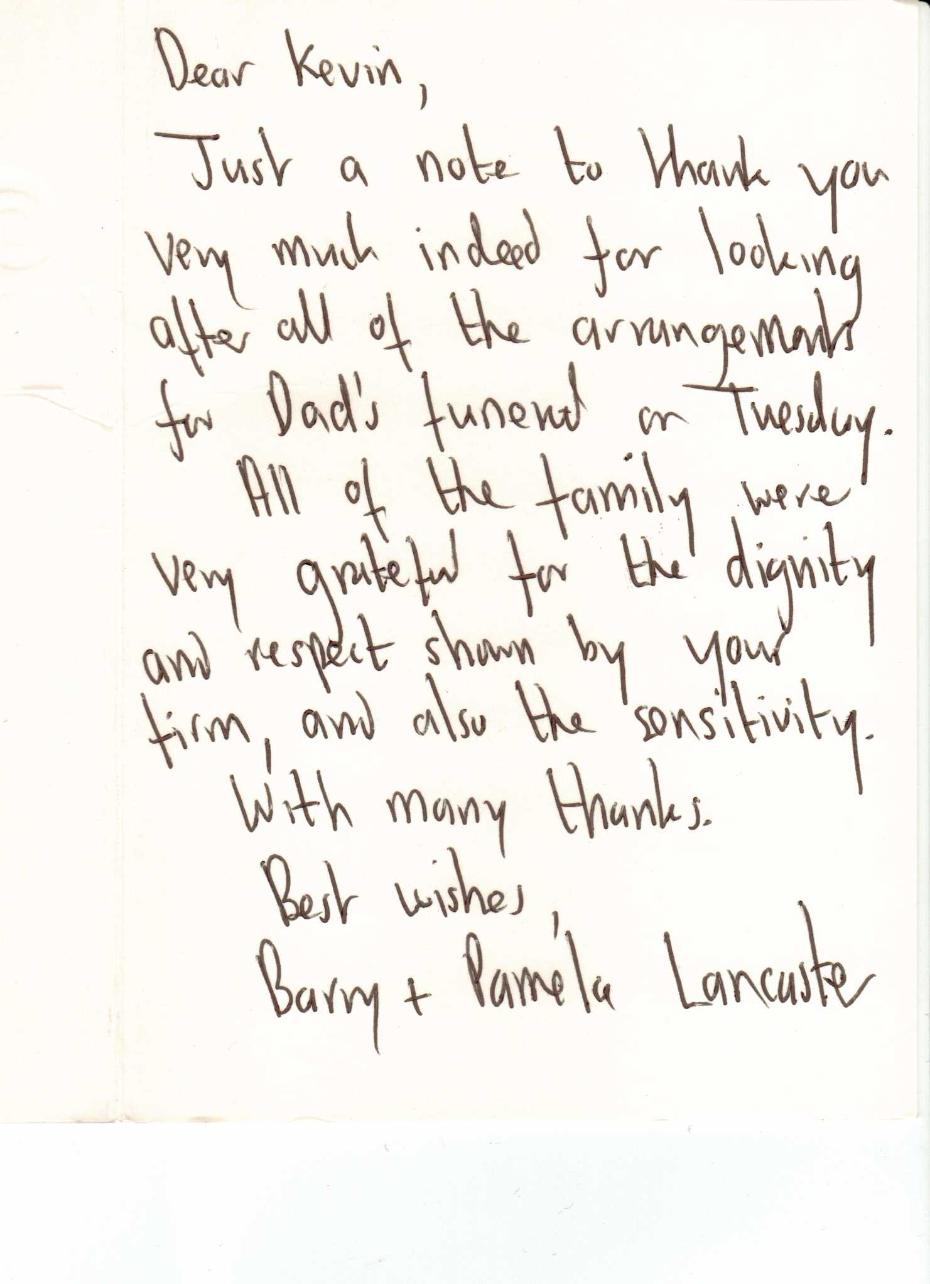 Dear Kevin,
Just a note to thank you
very much indeed for looking
after all of the arrangements
for Dad's funeral on Tuesday.
All of the family were
very grateful for the dignity
and respect shown by your
firm, and also the sensitivity.
With many thanks.
Best wishes,
Barry + Pamela Lancaster